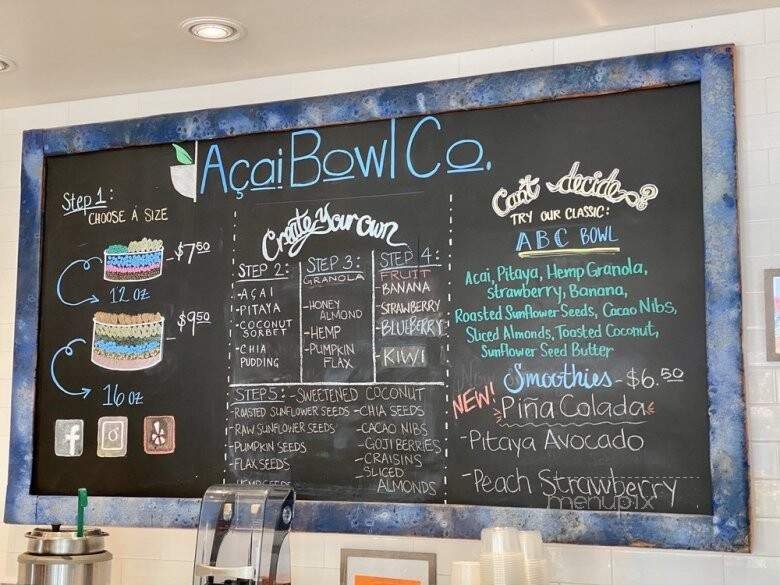 Açai Bowl Co.
Step 1:
CHOOSE A SIZE
$7.50
12 oz
$9.50
16 oz
f
Create Your Own
STEP 2:
-AÇAI
-PITAYA
-COCONUT
SORBET
-CHIA
PUDDING
STEP 3:
GRANOLA
-HONEY
ALMOND
-HEMP
-PUMPKIN
FLAX
STEP 4:
FRUIT
-BANANA
-STRAWBERRY
-BLUEBERRY
-KIWI
STEP 5:
-ROASTED SUNFLOWER SEEDS
-RAW SUNFLOWER SEEDS
-PUMPKIN SEEDS
-FLAX SEEDS
-HEMP SEEDS
-SWEETENED COCONUT
-CHIA SEEDS
-CACAO NIBS
-GOJI BERRIES
-CRAISINS
-SLICED
ALMONDS
Can't decide?
TRY OUR CLASSIC:
ABC BOWL
Acai, Pitaya, Hemp Granola,
Strawberry, Banana,
Roasted Sunflower Seeds, Cacao Nibs,
Sliced Almonds, Toasted Coconut,
Sunflower Seed Butter
Smoothies - $6.50
NEW!
Piña Colada
-Pitaya Avocado
-Peach Strawberry
menupix